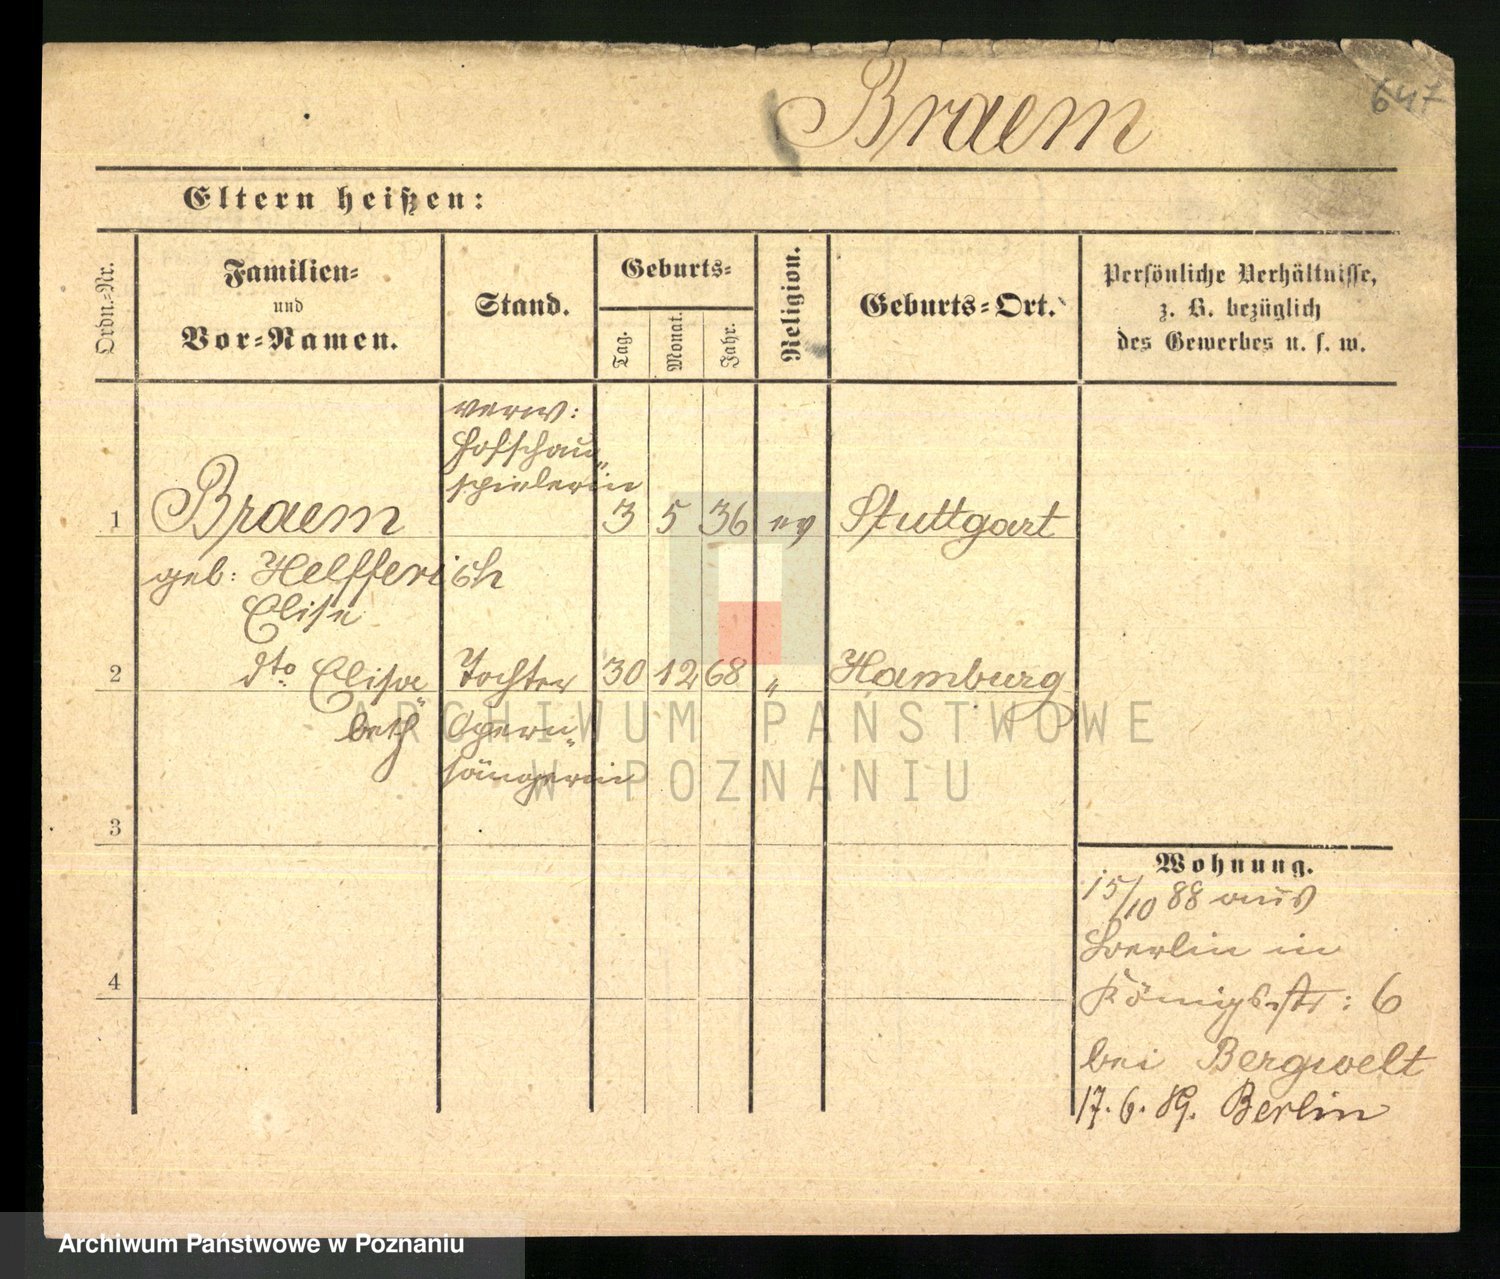 647
Braem
Eltern heißen:
Ordn.-Nr.
Familien-
und
Vor-Namen.
Stand.
Geburts-
Tag.
Monat.
Jahr.
Religion.
Geburts-Ort.
Persönliche Verhältnisse,
z. B. bezüglich
des Gewerbes u. s. w.
verw:
Hofschau„
spielerin
1 Braem 3 5 36 ev Stuttgart
geb: Helfferich
Elise
2 dto Elisa„ Tochter 30 12 68 „ Hamburg
beth Opern„
sängerin
ARCHIWUM PAŃSTWOWE
W POZNANIU
3
Wohnung.
15/10 88 aus
Berlin in
4
Königsstr: 6
bei Bergwelt
17. 6. 89. Berlin
Archiwum Państwowe w Poznaniu